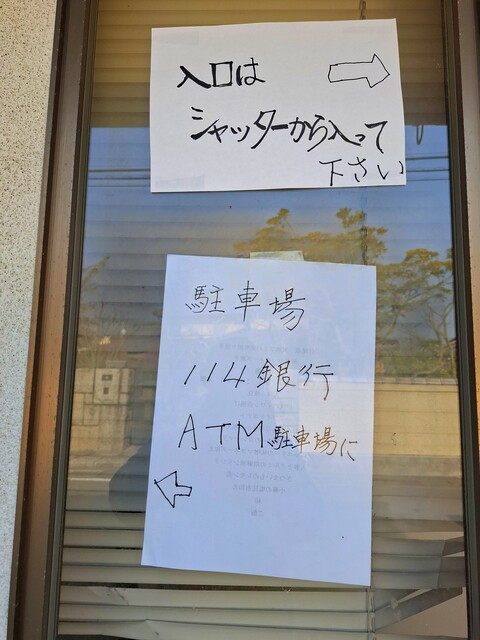 入口は
シャッターから入って
下さい
駐車場
114銀行
ATM駐車場に